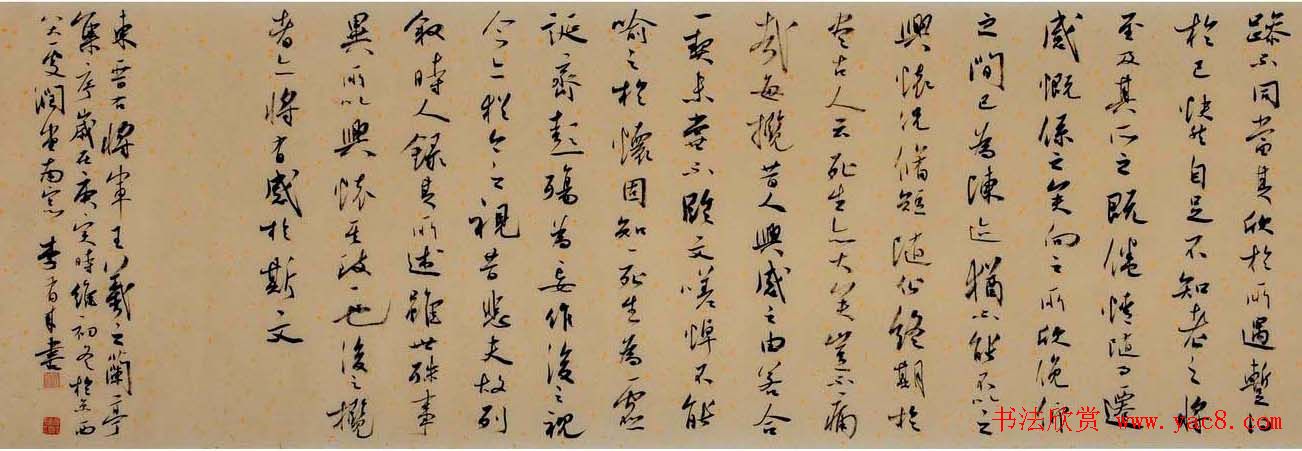 躁不同當其欣於所遇暫得
於己快然自足不知老之將
至及其所之既倦情隨事遷
感慨係之矣向之所欣俛仰
之間已為陳迹猶不能不以之
興懷況脩短隨化終期於
盡古人云死生亦大矣豈不痛
哉每攬昔人興感之由若合
一契未嘗不臨文嗟悼不能
喻之於懷固知一死生為虛
誕齊彭殤為妄作後之視
今亦猶今之視昔悲夫故列
敘時人錄其所述雖世殊事
異所以興懷其致一也後之攬
者亦將有感於斯文
東晉右將軍王羲之蘭亭
集序歲在庚寅時維初冬於京西
八大處潤南窗 李有來書
书法欣赏
www.yac8.com